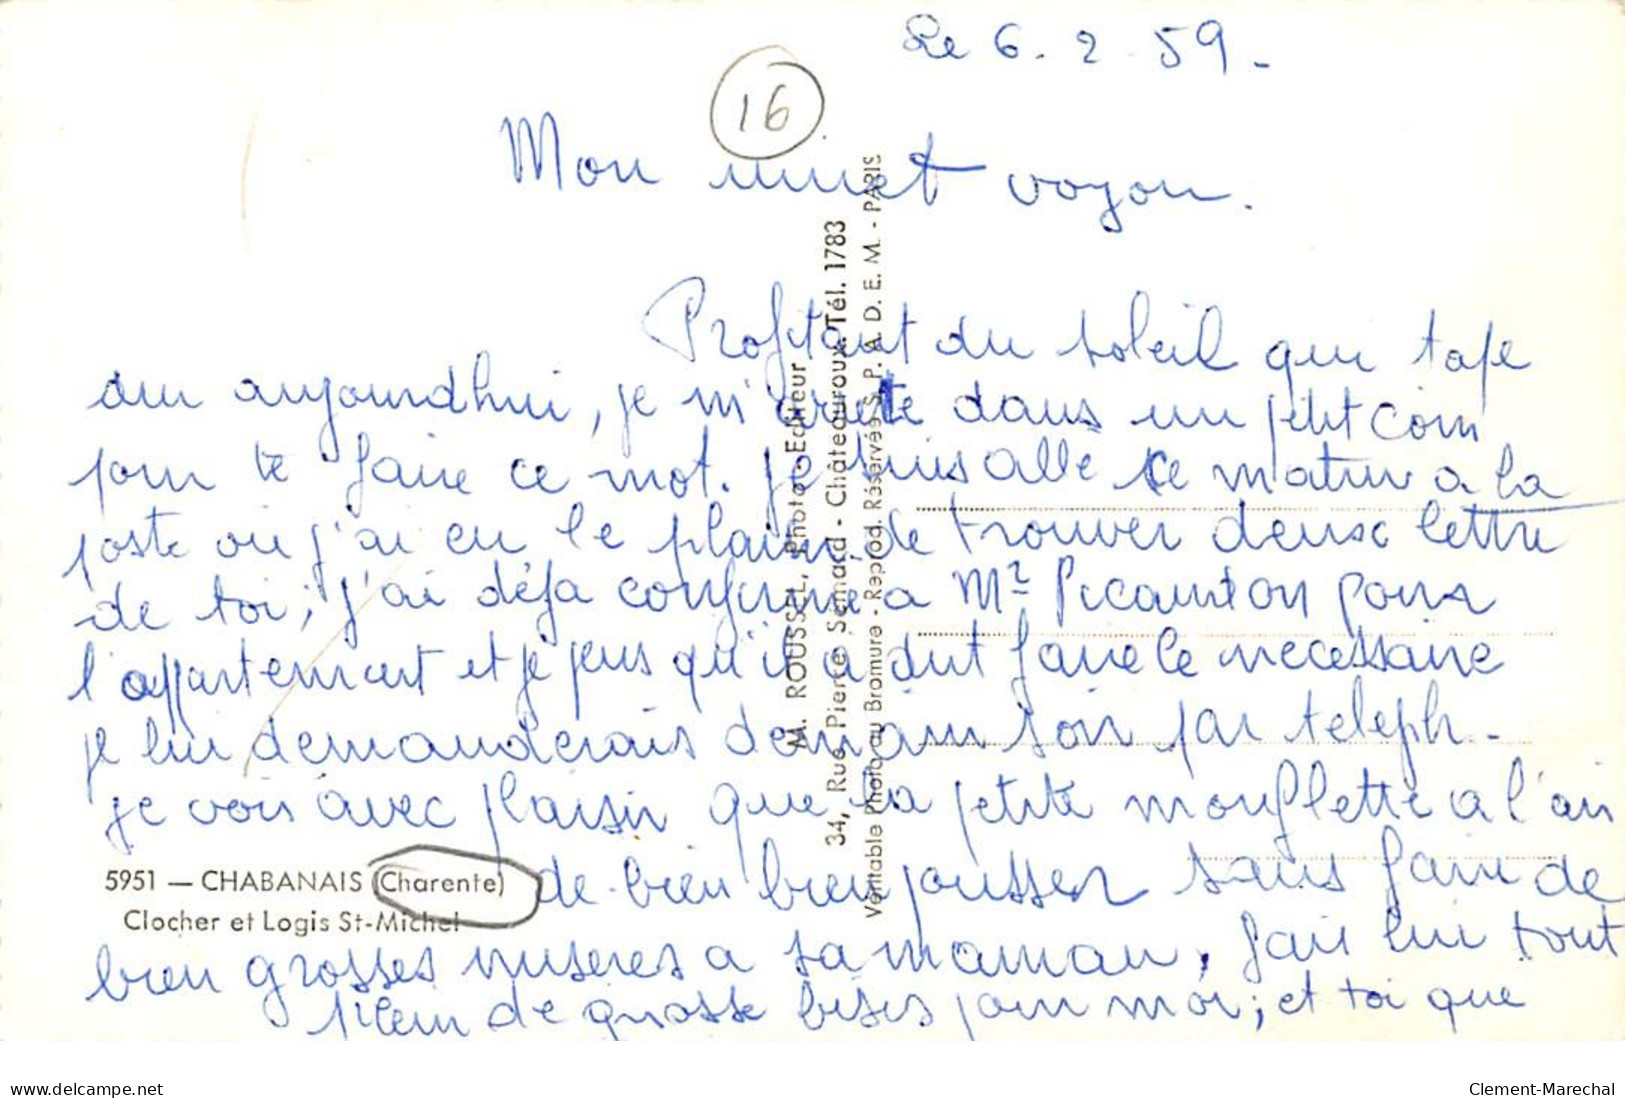 Le 6. 2. 59 -
16
Mon minet voyou.
Profitant du soleil qui tape
dur aujourd'hui, je m'arrête dans un petit coin
pour te faire ce mot. je suis allé ce matin a la
poste ou j'ai eu le plaisir de trouver deux lettre
de toi; j'ai déja confirmé a Mr Picaunton pour
l'appartement et je pens qu'il a dut faire le necessaire
je lui demanderais demain soir par teleph-
je vois avec plaisir que la petite mouflette a l'air
de bien bien pousser sans faire de
bien grosses miseres a sa maman, fais lui tout
plein de grosse bises pour moi; et toi que
5951 — CHABANAIS (Charente)
Clocher et Logis St-Michel
M. ROUSSEL, Photo-Editeur
34, Rue Pierre Semard - Châteauroux. Tél. 1783
Véritable Photo au Bromure - Reprod. Réservée S. P. A. D. E. M. - PARIS
www.delcampe.net
Clement-Marechal